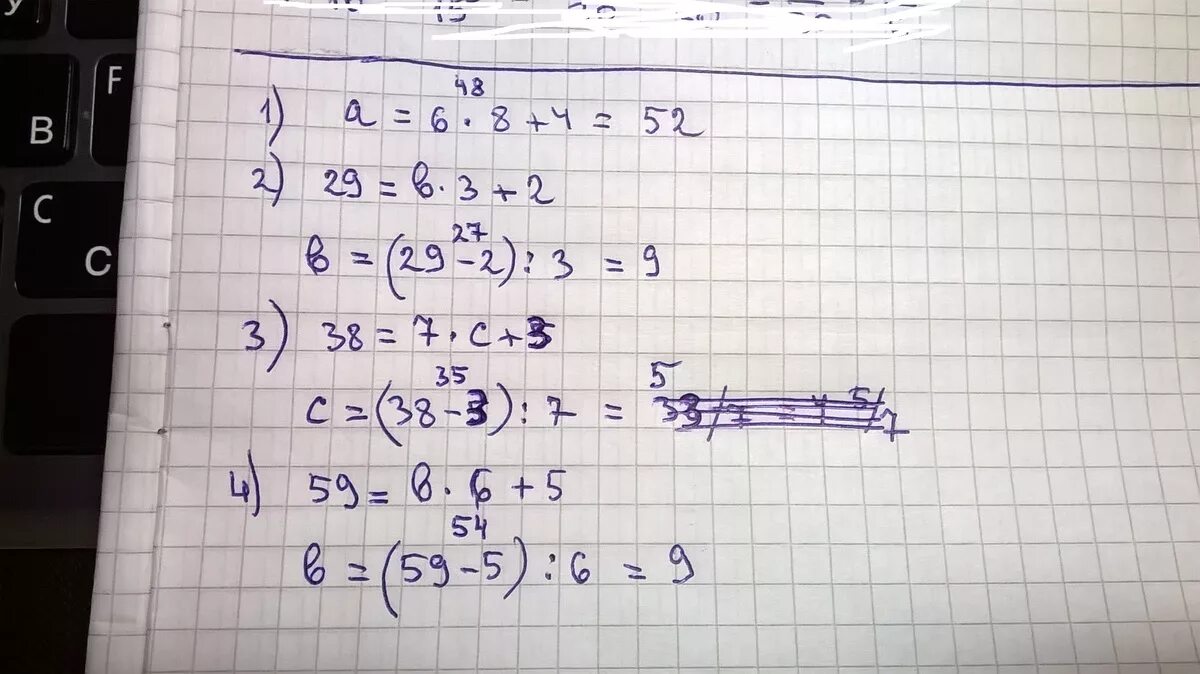 1) a = 6 · 8 + 4 = 52
48
2) 29 = в · 3 + 2
27
в = (29 - 2) : 3 = 9
3) 38 = 7 · c + 3
35
c = (38 - 3) : 7 = 5
4) 59 = в · 6 + 5
54
в = (59 - 5) : 6 = 9
F
B
C
C